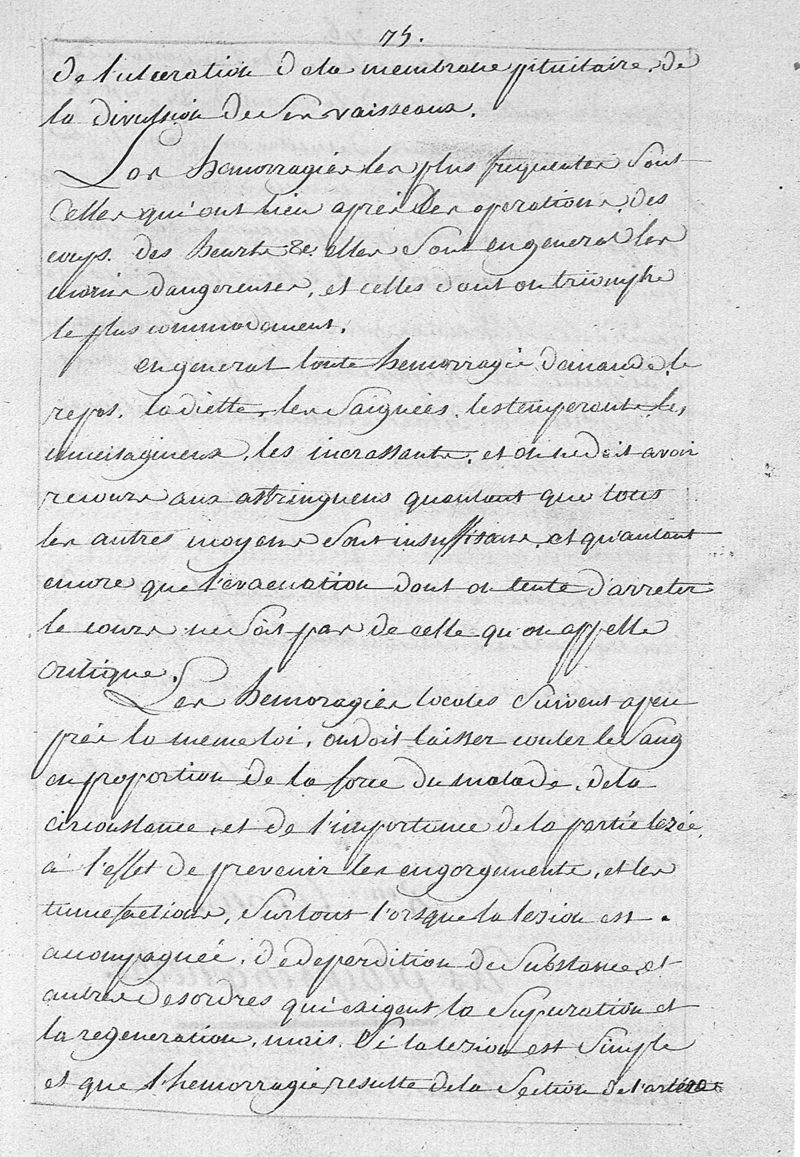 75.
de l'ulceration de la membrane pituitaire, de
la divission de ses vaisseaux.
Les hemorragies les plus frequentes sont
Celles qui ont lieu après les operations, des
coups. des heurts &c. elles sont en general les
moins dangereuses, et celles dont on triomphe
le plus commodament.
en general toute hemorragie, demande, le
repos. la diette, les saignées. les temperants les
mucilagineux, les incrassants, et on ne doit avoir
recours aux astringuens quautant que tous
les autres moyens sont insuffisans, et qu'autant
encore que l'évacuation dont on tente d'arreter
le cours ne soit pas de celle qu'on appelle
critique.
Les hemoragies locales suivent apeu
près la meme loi, on doit laisser couler le sang
en proportion de la force du malade, de la
circonstance, et de l'importence de la partie lezée,
à l'effet de prevenir les engorgements, et les
tumefactions, surtout l'orsque la lezion est
accompagnée, de deperdition de substance, et
autres desordres qui exigent la supuration et
la regeneration, mais, si la lezion est simple
et que l'hemorragie, resulte de la section de l'artère